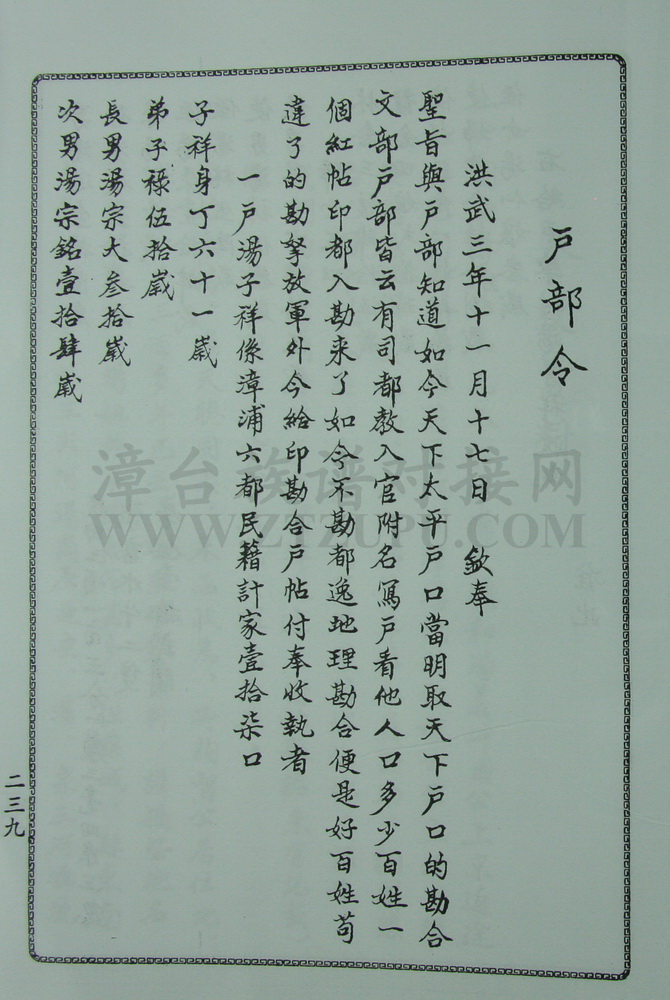 戶部令
洪武三年十一月十七日 欽奉
聖旨與戶部知道如今天下太平戶口當明取天下戶口的勘合
文部戶部皆云有司都教入官附名寫戶看他人口多少百姓一
個紅帖印都入勘來了如今不勘都逸地理勘合便是好百姓苟
違了的勘拏放軍外今給印勘合戶帖付奉收執者
一戶湯子祥係漳浦六都民籍計家壹拾柒口
子祥身丁六十一歲
弟子祿伍拾歲
長男湯宗大叁拾歲
次男湯宗銘壹拾肆歲
二三九
漳台族谱对接网
WWW.ZTZUPU.COM